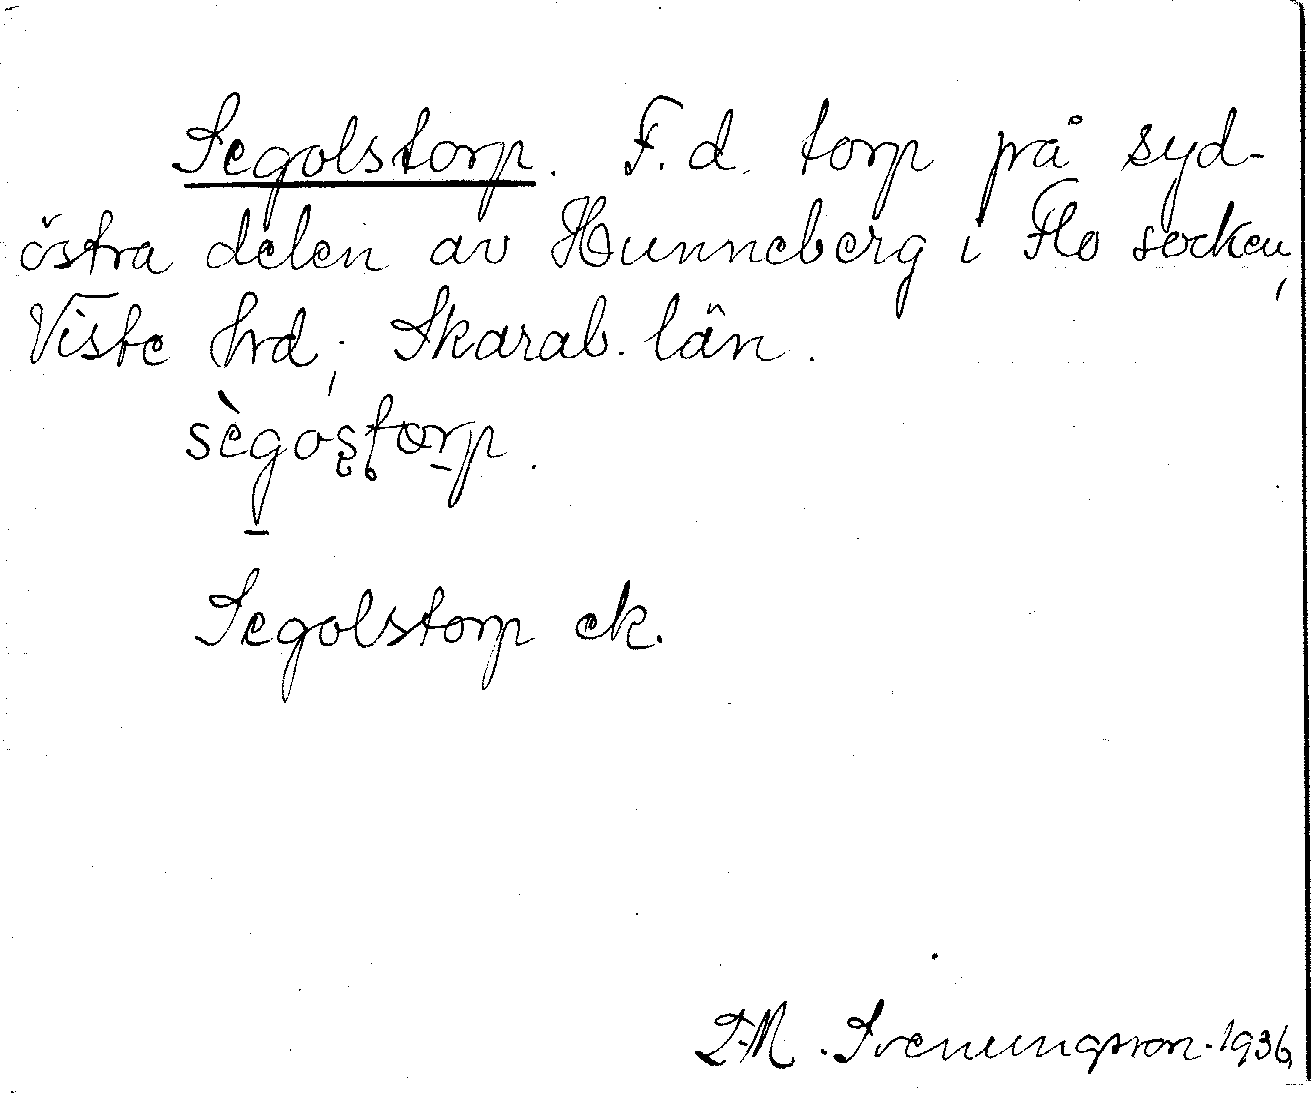 Segolstorp. F.d. torp på syd-
östra delen av Hunneberg i Flo socken,
Viste hrd, Skarab. län.
sègo̱ʂʈo̱rp.
Segolstorp ek.
Svenungsson. 1936